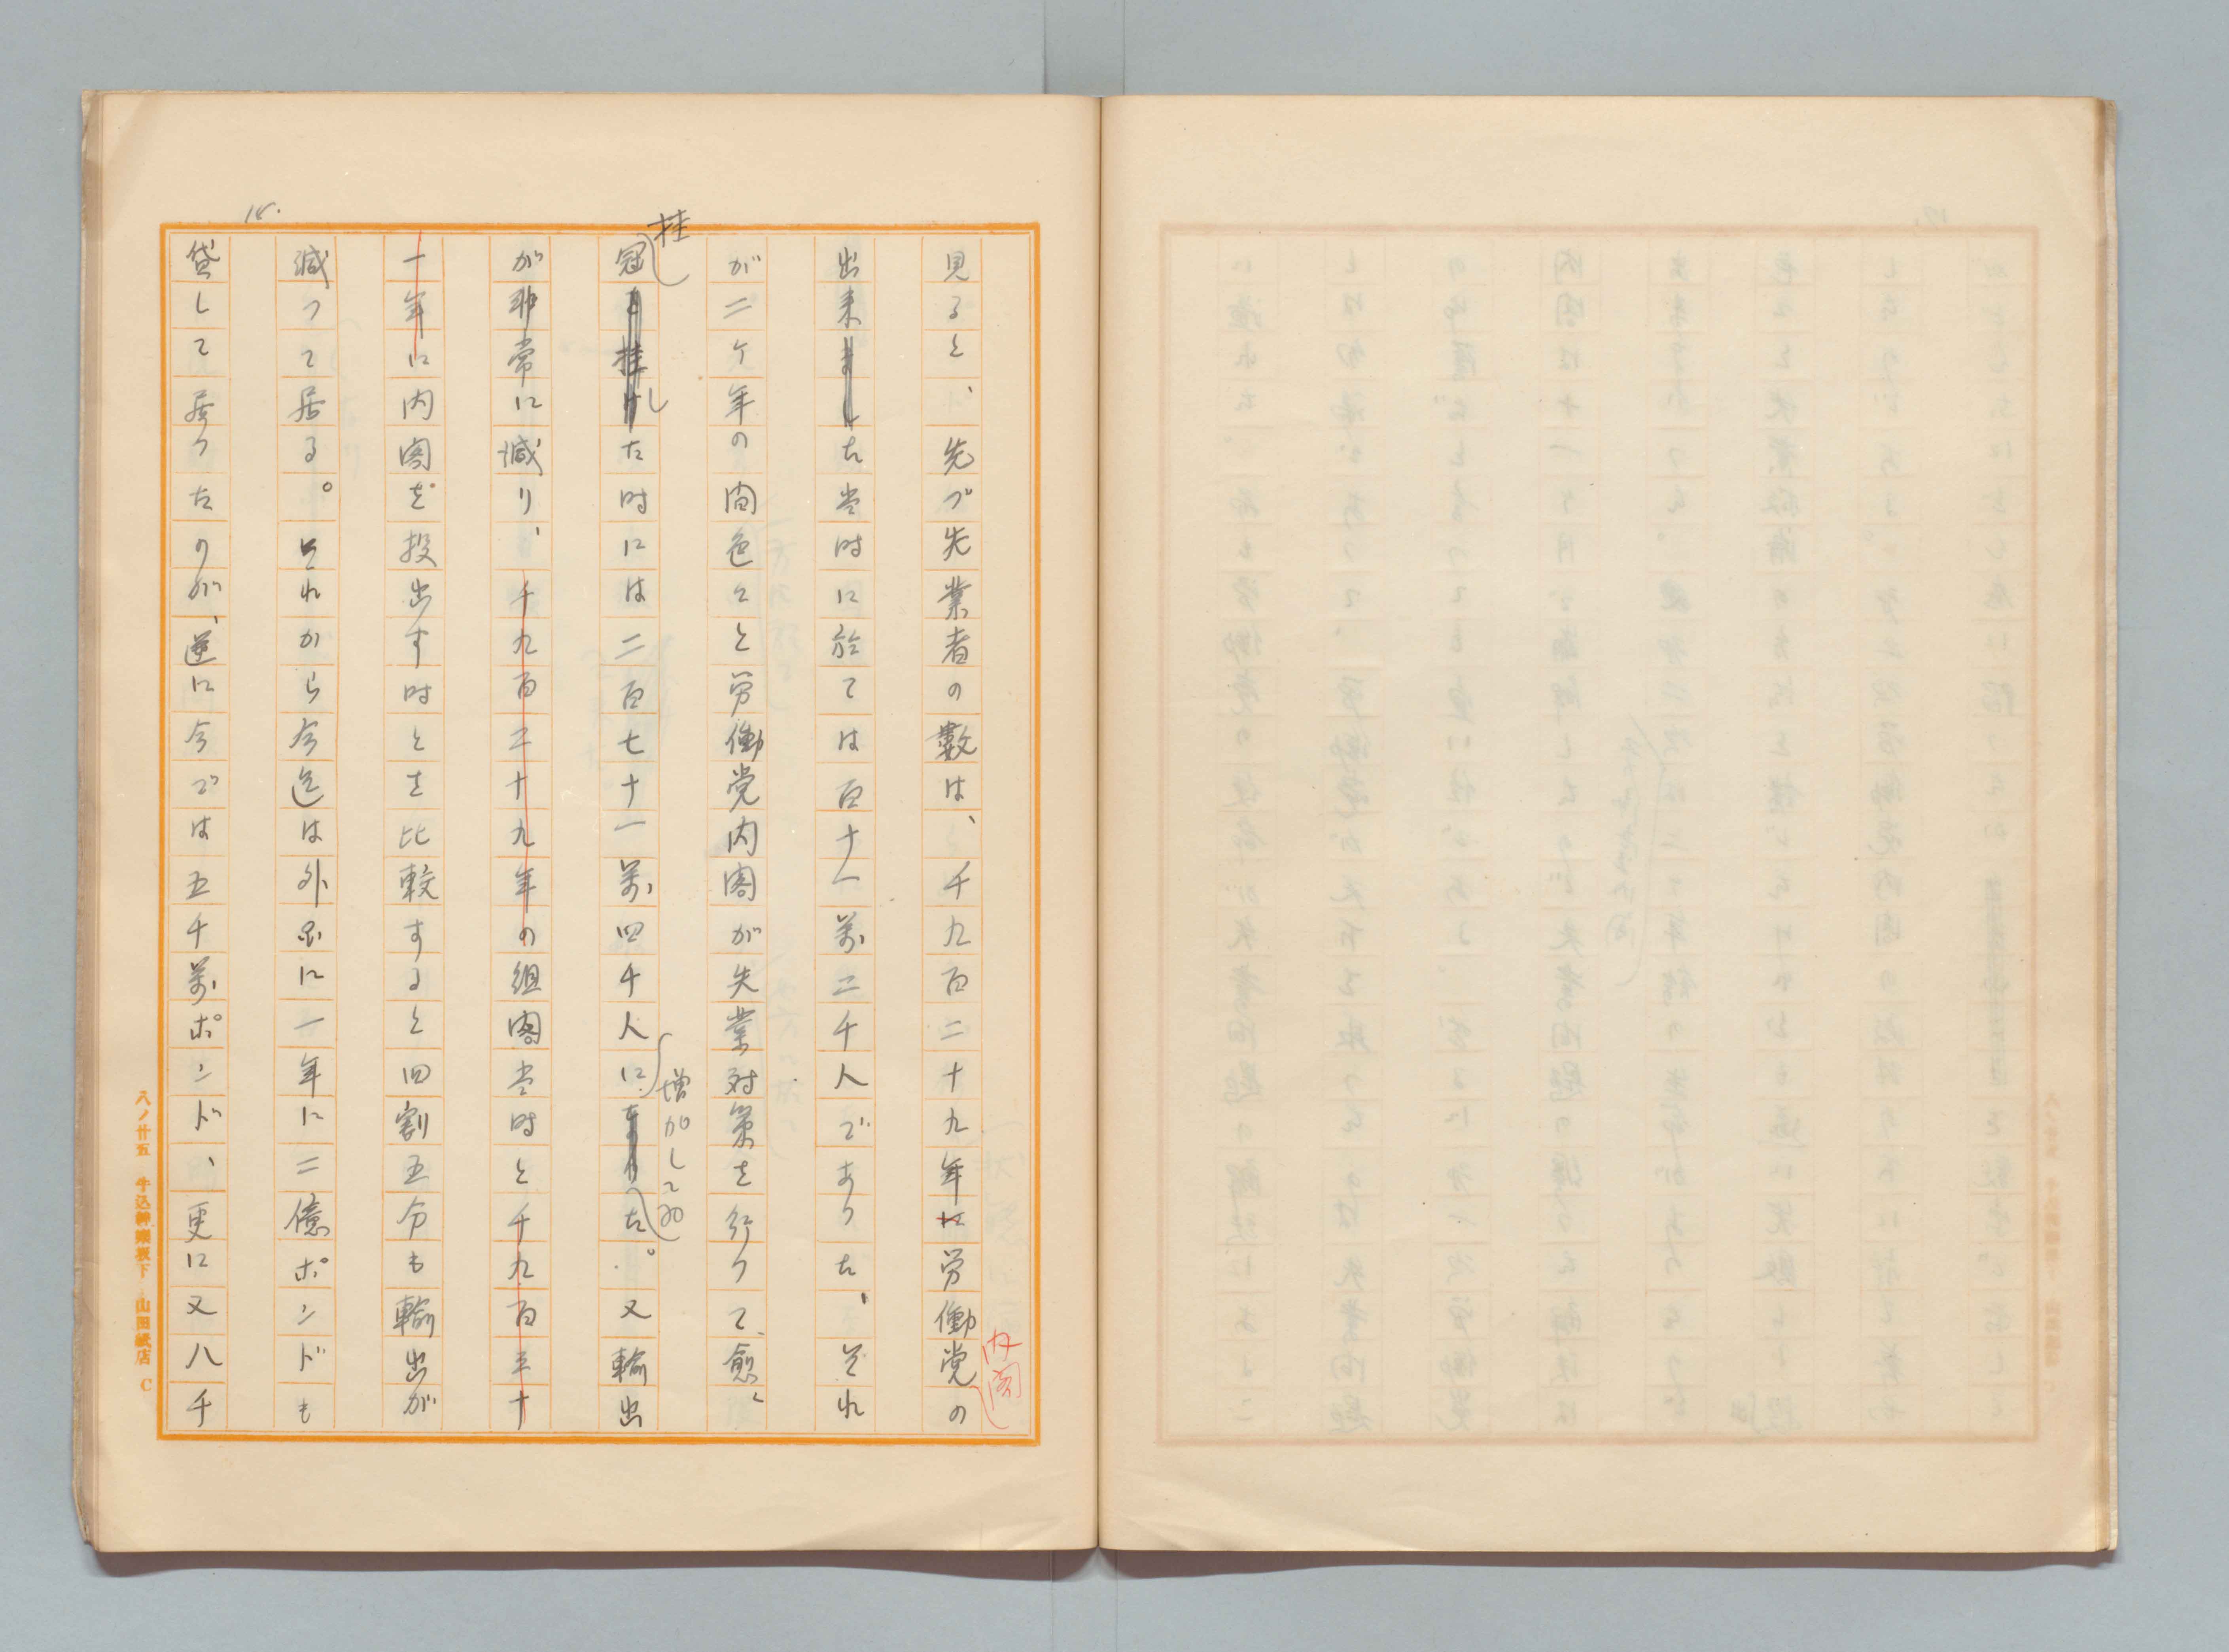 18.
見ると、先づ失業者の數は、千九百二十九年に労働党の
内閣
出来ました当時に於ては百十一萬二千人であつた、それ
が二ケ年の間色々と労働党内閣が失業対策を行つて、愈々
挂
冠を挂けした時には二百七十一萬四千人になりた。又輸出
増加して
が非常に減り、千九百二十九年の組閣当時と千九百三十
一年に内閣を投出す時とを比較すると四割五分も輸出が
減つて居る。それから今迄は外国に一年に二億ポンドも
貸して居つたのが、逆に今では五千萬ポンド、更に又八千
八ノ廿五 牛込神楽坂下 山田紙店 C